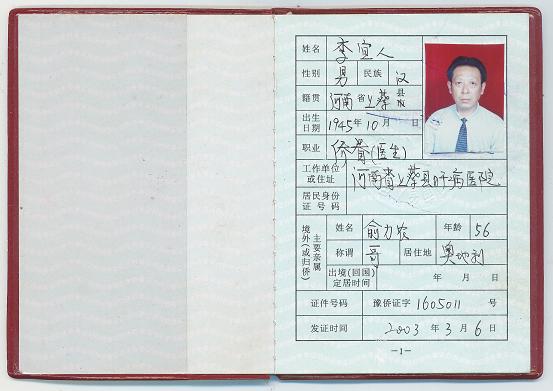 姓名 李宜人
性别 男 民族 汉
籍贯 河南省上蔡县
市
出生日期 1945年10月 日
职业 侨眷(医生)
工作单位或住址 河南省上蔡县肝病医院
居民身份证号码
境外(或归侨)主要亲属
姓名 俞力农 年龄 56
称谓 哥 居住地 奥地利
出境(回国)定居时间 年 月 日
证件号码 豫侨证字 1605011 号
发证时间 2003年3月6日
—1—